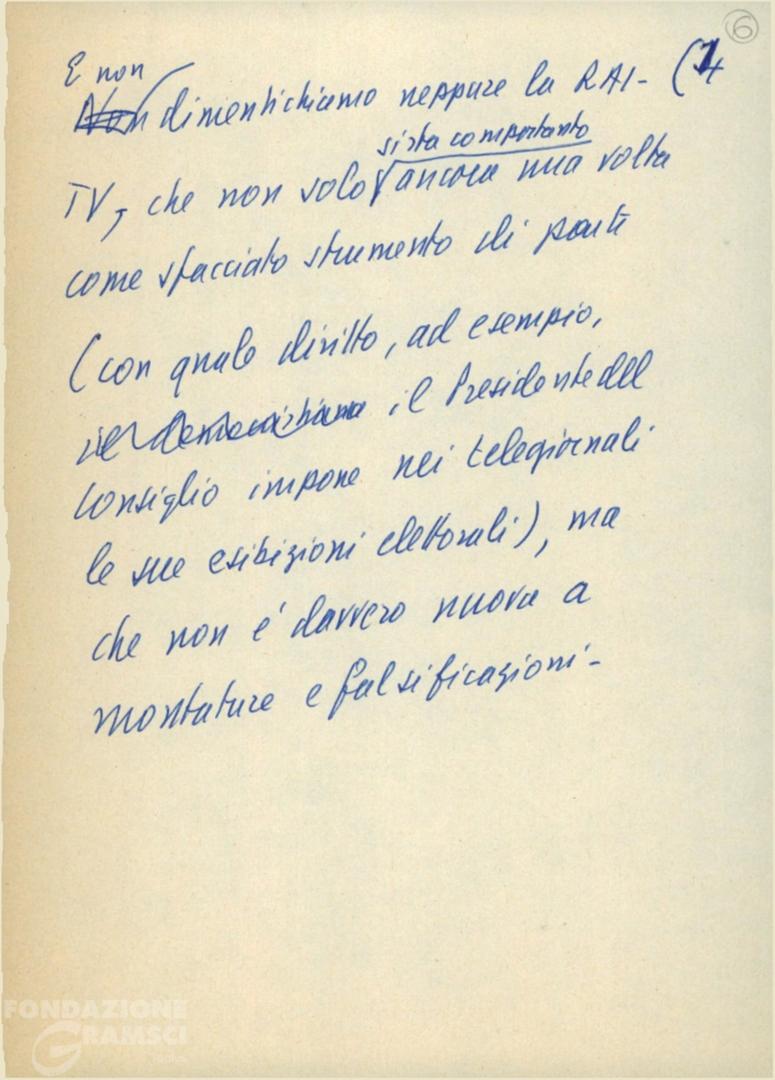 6
E non
Non dimentichiamo neppure la RAI- (7
si sta comportando
TV, che non solo ancora una volta
come sfacciato strumento di parte
(con quale diritto, ad esempio,
il Presidente del
Consiglio impone nei telegiornali
le sue esibizioni elettorali), ma
che non è davvero nuova a
montature e falsificazioni-
FONDAZIONE
GRAMSCI